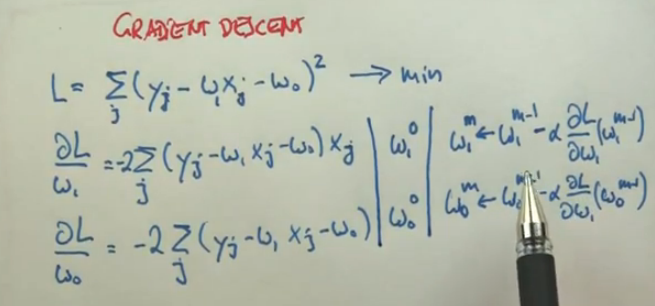 GRADIENT DESCENT
L = Σ_j (y_j - ω_1 x_j - ω_0)² → min
∂L/ω_1 = -2 Σ_j (y_j - ω_1 x_j - ω_0) x_j | ω_1^0 | ω_1^m ← ω_1^{m-1} - α ∂L/∂ω_1 (ω_1^{m-1})
∂L/ω_0 = -2 Σ_j (y_j - ω_1 x_j - ω_0) | ω_0^0 | ω_0^m ← ω_0^{m-1} - α ∂L/∂ω_1 (ω_0^{m-1})